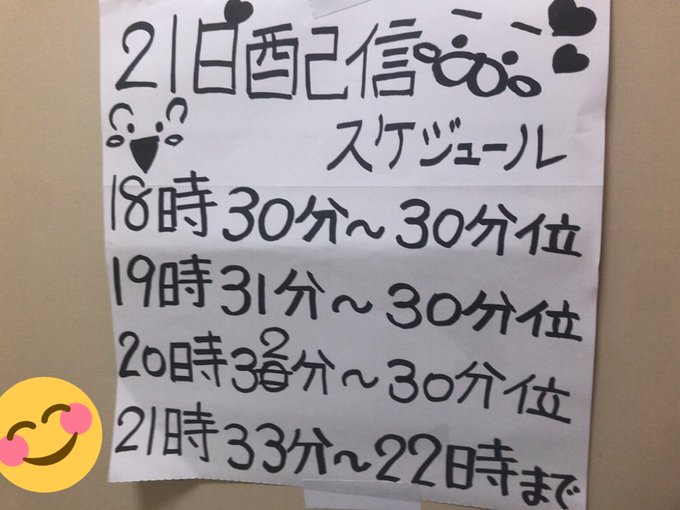 21日配信
スケジュール
18時30分~30分位
19時31分~30分位
20時32分~30分位
21時33分~22時まで